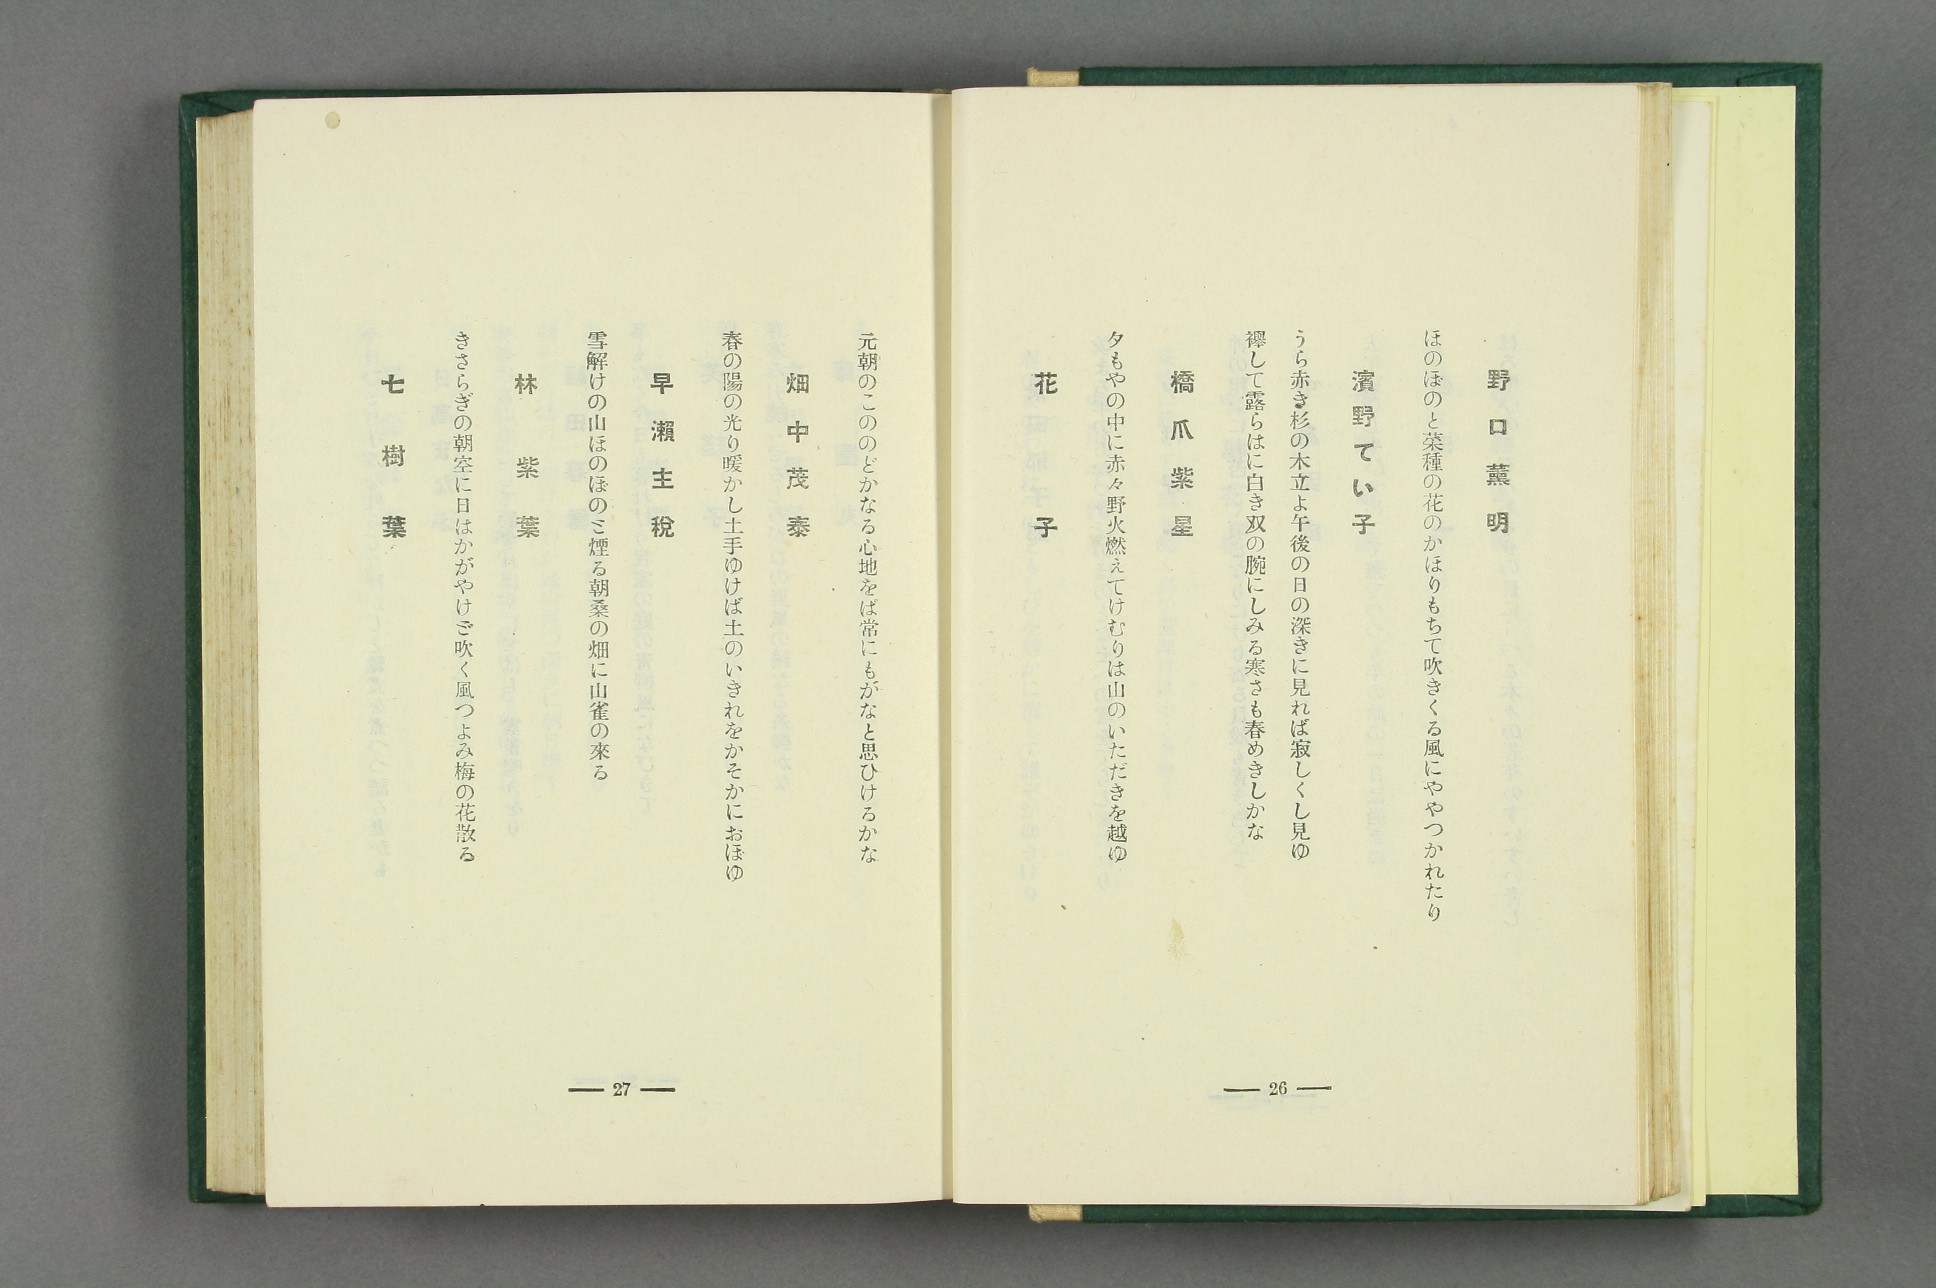 野口薫明
ほのぼのと菜種の花のかほりもちて吹きくる風にややつかれたり
濱野てい子
うら赤き杉の木立よ午後の日の深きに見れば寂しくし見ゆ
襷して露らはに白き双の腕にしみる寒さも春めきしかな
橋爪紫星
夕もやの中に赤々野火燃えてけむりは山のいただきを越ゆ
花子
— 26 —
元朝のこののどかなる心地をば常にもがなと思ひけるかな
畑中茂泰
春の陽の光り暖かし土手ゆけば土のいきれをかそかにおぼゆ
早瀬主税
雪解けの山ほのぼのと煙る朝桑の畑に山雀の來る
林紫葉
きさらぎの朝空に日はかがやけど吹く風つよみ梅の花散る
七樹葉
— 27 —